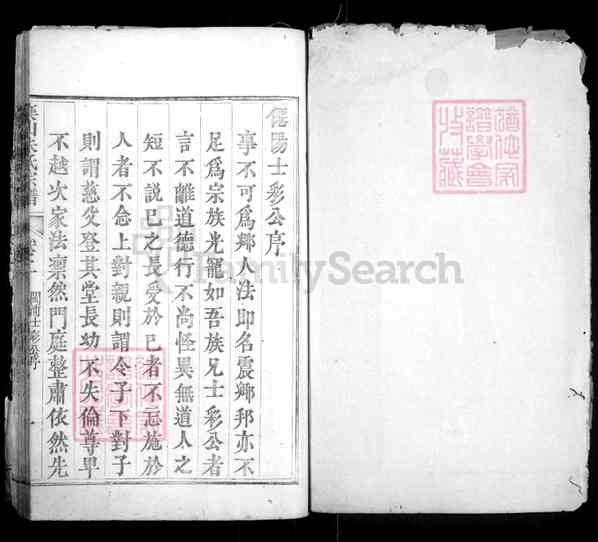 陽士彩公序
事不可爲鄉人法即名震鄉邦亦不
足爲宗族光寵如吾族兄士彩公者
言不離道德行不尚怪異無道人之
短不說己之長受於己者不忘施於
人者不念上對親則謂令子下對子
則謂慈父登其堂長幼不失倫尊卑
不越次家法凜然門庭整肅依然先
氏宗譜
士彩公序
FamilySearch